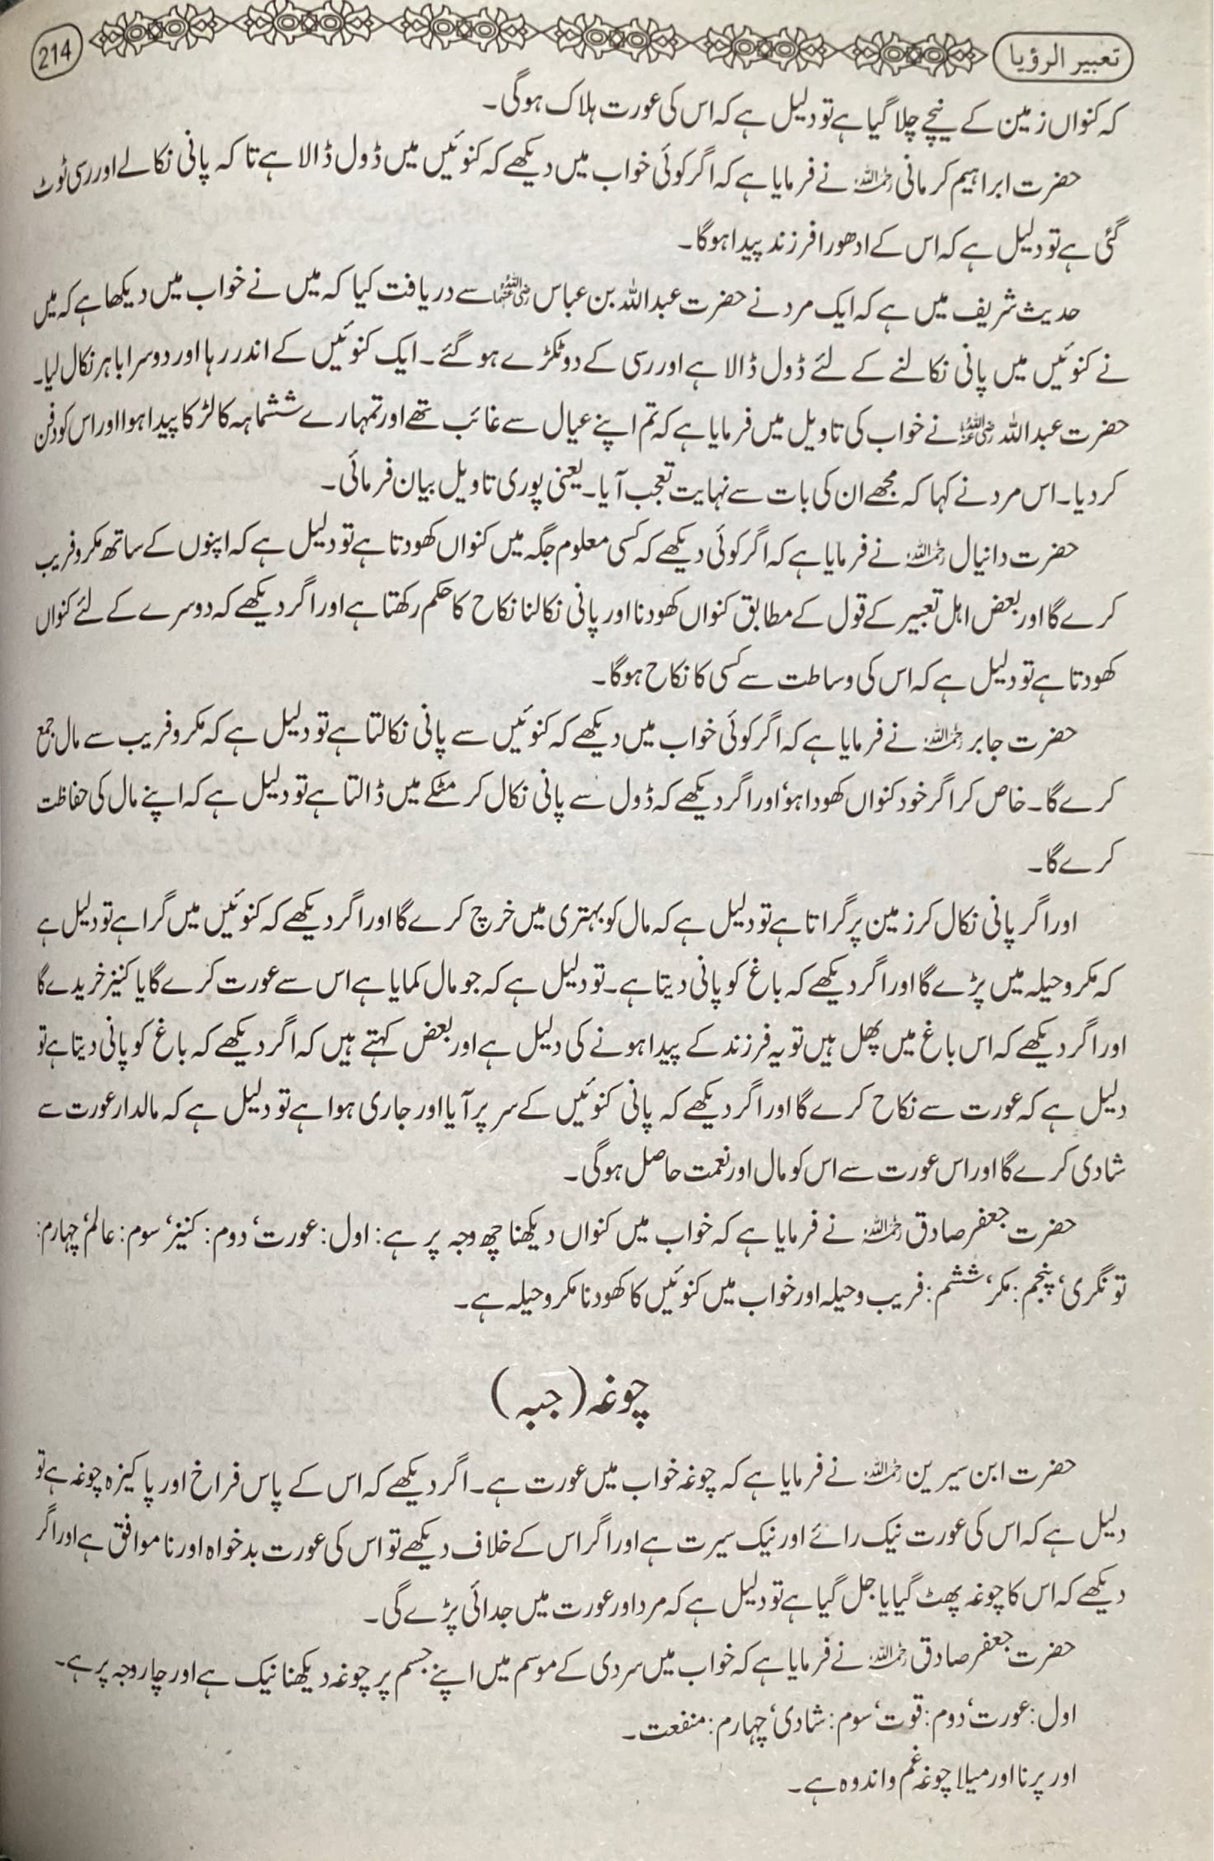 تعبیر الرؤیا
214
کہ کنواں زمین کے نیچے چلا گیا ہے تو دلیل ہے کہ اس کی عورت ہلاک ہوگی۔
حضرت ابراہیم کرمانی رحمۃ اللہ علیہ نے فرمایا ہے کہ اگر کوئی خواب میں دیکھے کہ کنوئیں میں ڈول ڈالا ہے تا کہ پانی نکالے اور رسی ٹوٹ
گئی ہے تو دلیل ہے کہ اس کے ادھورا فرزند پیدا ہوگا۔
حدیث شریف میں ہے کہ ایک مرد نے حضرت عبداللہ بن عباس رضی اللہ عنہما سے دریافت کیا کہ میں نے خواب میں دیکھا ہے کہ میں
نے کنوئیں میں پانی نکالنے کے لئے ڈول ڈالا ہے اور رسی کے دو ٹکڑے ہو گئے۔ ایک کنوئیں کے اندر رہا اور دوسرا باہر نکال لیا۔
حضرت عبداللہ رضی اللہ عنہ نے خواب کی تاویل میں فرمایا ہے کہ تم اپنے عیال سے غائب تھے اور تمہارے ششماہہ کا لڑکا پیدا ہوا اور اس کو دفن
کر دیا۔ اس مرد نے کہا کہ مجھے ان کی بات سے نہایت تعجب آیا۔ یعنی پوری تاویل بیان فرمائی۔
حضرت دانیال رحمۃ اللہ علیہ نے فرمایا ہے کہ اگر کوئی دیکھے کہ کسی معلوم جگہ میں کنواں کھودتا ہے تو دلیل ہے کہ اپنوں کے ساتھ مکر و فریب
کرے گا اور بعض اہل تعبیر کے قول کے مطابق کنواں کھودنا اور پانی نکالنا نکاح کا حکم رکھتا ہے اور اگر دیکھے کہ دوسرے کے لئے کنواں
کھودتا ہے تو دلیل ہے کہ اس کی وساطت سے کسی کا نکاح ہوگا۔
حضرت جابر رحمۃ اللہ علیہ نے فرمایا ہے کہ اگر کوئی خواب میں دیکھے کہ کنوئیں سے پانی نکالتا ہے تو دلیل ہے کہ مکر و فریب سے مال جمع
کرے گا۔ خاص کر اگر خود کنواں کھودا ہو‘ اور اگر دیکھے کہ ڈول سے پانی نکال کر مٹکے میں ڈالتا ہے تو دلیل ہے کہ اپنے مال کی حفاظت
کرے گا۔
اور اگر پانی نکال کر زمین پر گراتا ہے تو دلیل ہے کہ مال کو بہتری میں خرچ کرے گا اور اگر دیکھے کہ کنوئیں میں گرا ہے تو دلیل ہے
کہ مکر و حیلہ میں پڑے گا اور اگر دیکھے کہ باغ کو پانی دیتا ہے۔ تو دلیل ہے کہ جو مال کمایا ہے اس سے عورت کرے گا یا کنیز خریدے گا
اور اگر دیکھے کہ اس باغ میں پھل ہیں تو یہ فرزند کے پیدا ہونے کی دلیل ہے اور بعض کہتے ہیں کہ اگر دیکھے کہ باغ کو پانی دیتا ہے تو
دلیل ہے کہ عورت سے نکاح کرے گا اور اگر دیکھے کہ پانی کنوئیں کے سر پر آیا اور جاری ہوا ہے تو دلیل ہے کہ مالدار عورت سے
شادی کرے گا اور اس عورت سے اس کو مال اور نعمت حاصل ہوگی۔
حضرت جعفر صادق رحمۃ اللہ علیہ نے فرمایا ہے کہ خواب میں کنواں دیکھنا چھ وجہ پر ہے: اول: عورت‘ دوم: کنیز‘ سوم: عالم‘ چہارم:
تونگری‘ پنجم: مکر‘ ششم: فریب و حیلہ اور خواب میں کنوئیں کا کھودنا مکر و حیلہ ہے۔
چوغہ (جبہ)
حضرت ابن سیرین رحمۃ اللہ علیہ نے فرمایا ہے کہ چوغہ خواب میں عورت ہے۔ اگر دیکھے کہ اس کے پاس فراخ اور پاکیزہ چوغہ ہے تو
دلیل ہے کہ اس کی عورت نیک رائے اور نیک سیرت ہے اور اگر اس کے خلاف دیکھے تو اس کی عورت بدخواہ اور نا موافق ہے اور اگر
دیکھے کہ اس کا چوغہ پھٹ گیا یا جل گیا ہے تو دلیل ہے کہ مرد اور عورت میں جدائی پڑے گی۔
حضرت جعفر صادق رحمۃ اللہ علیہ نے فرمایا ہے کہ خواب میں سردی کے موسم میں اپنے جسم پر چوغہ دیکھنا نیک ہے اور چار وجہ پر ہے۔
اول: عورت‘ دوم: قوت‘ سوم: شادی‘ چہارم: منفعت۔
اور پرنا اور میلا چوغہ غم و اندوہ ہے۔